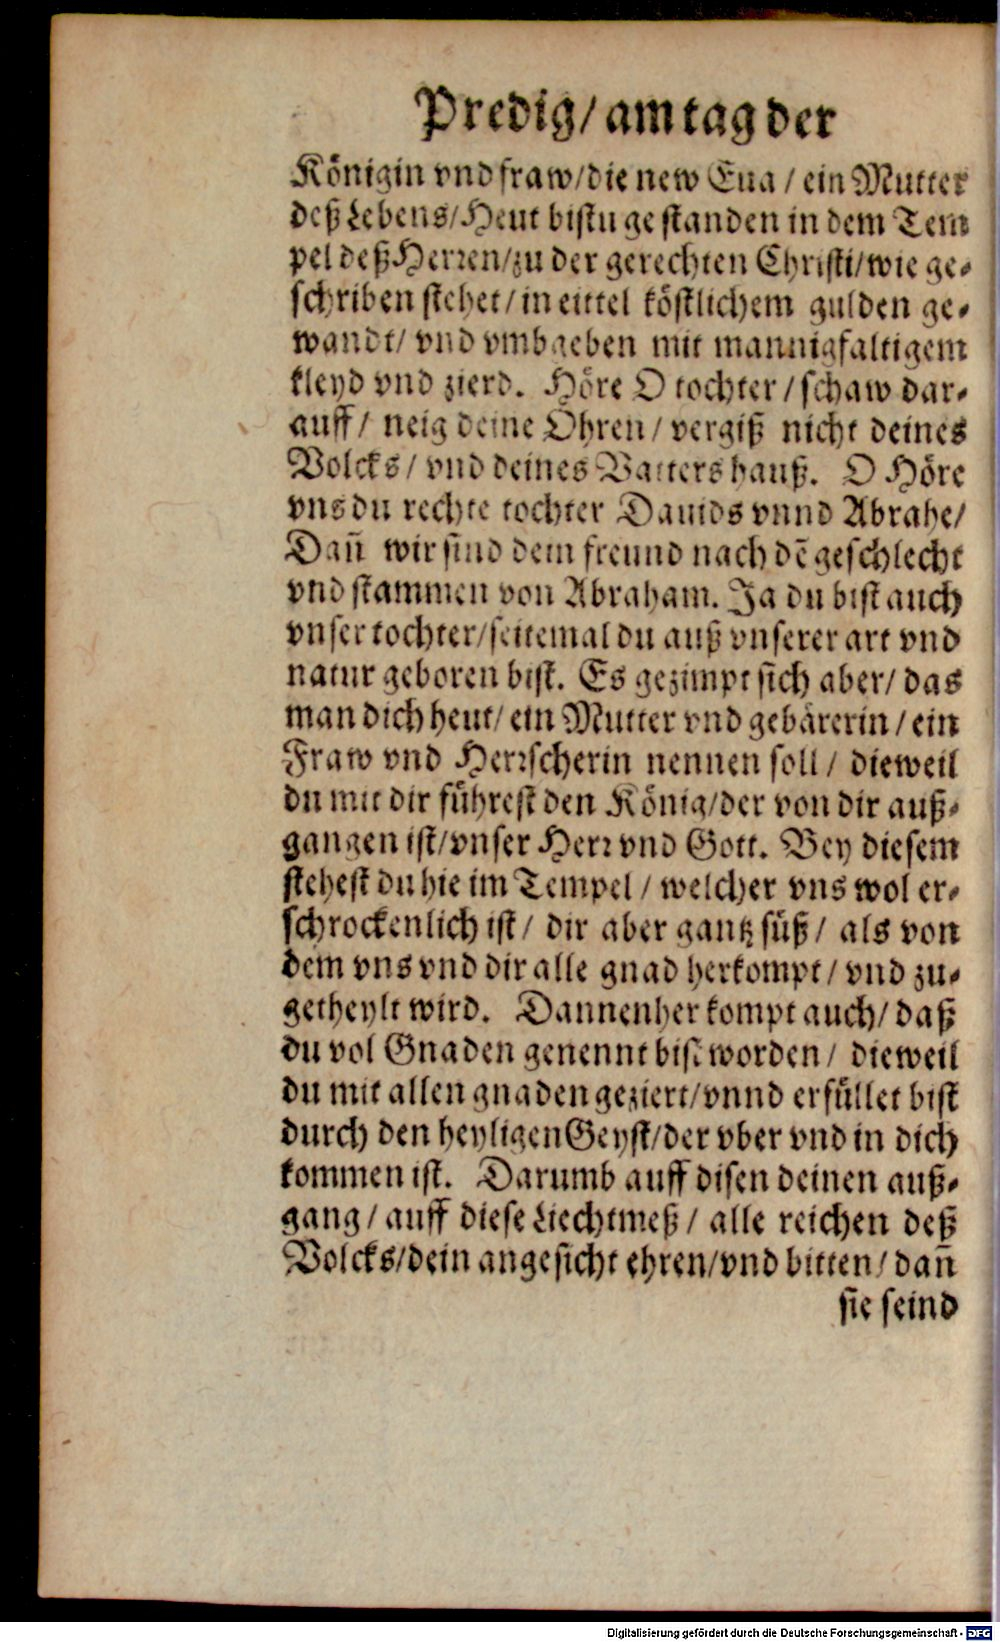 Predig/ am tag der
Königin vnd fraw/die new Eua / ein Mutter
deß Lebens/Heut bistu gestanden in dem Tem
pel deß Herren/zu der gerechten Christi/wie ge-
schriben stehet/in eittel köstlichem gulden ge-
wandt/ vnd vmbgeben mit mannigfaltigem
kleyd vnd zierd. Höre O tochter / schaw dar-
auff/ neig deine Ohren/ vergiß nicht deines
Volcks/ vnd deines Vatters hauß. O Höre
vns du rechte tochter Dauids vnnd Abrahe/
Dañ wir sind dein freund nach dẽ geschlecht
vnd stammen von Abraham. Ja du bist auch
vnser tochter/seitemal du auß vnserer art vnd
natur geboren bist. Es gezimpt sich aber/ das
man dich heut/ ein Mutter vnd gebärerin / ein
Fraw vnd Herrscherin nennen soll / dieweil
du mit dir führest den König/der von dir auß-
gangen ist/vnser Herr vnd Gott. Bey diesem
stehest du hie im Tempel / welcher vns wol er-
schrockenlich ist/ dir aber gantz süß/ als von
dem vns vnd dir alle gnad herkompt/ vnd zu-
getheylt wird. Dannenher kompt auch/ daß
du vol Gnaden genennt bist worden / dieweil
du mit allen gnaden geziert/vnnd erfüllet bist
durch den heyligen Geyst/der vber vnd in dich
kommen ist. Darumb auff disen deinen auß-
gang / auff diese Liechtmeß / alle reichen deß
Volcks/dein angesicht ehren/vnd bitten/ dañ
sie seind
Digitalisierung gefördert durch die Deutsche Forschungsgemeinschaft - DFG